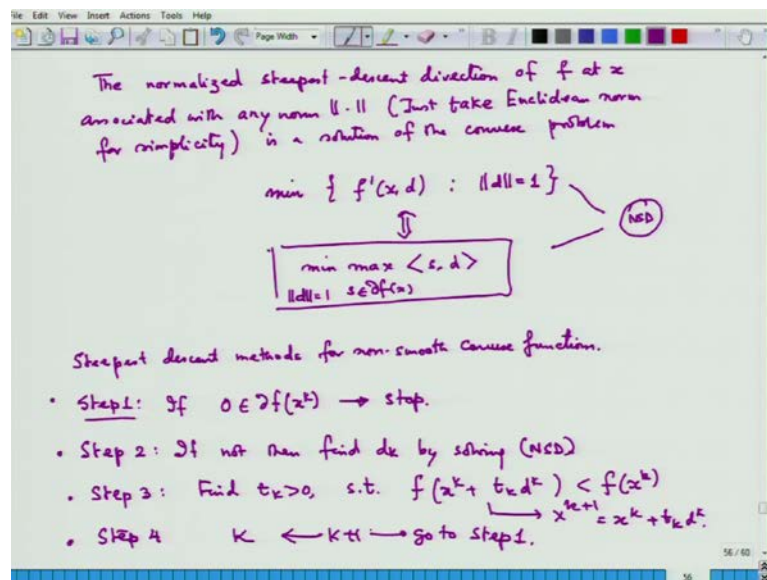 File Edit View Insert Actions Tools Help
Page Width
The normalized steepest-descent direction of f at x
associated with any norm ||·|| (Just take Euclidean norm
for simplicity) is a solution of the convex problem
min { f'(x,d) : ||d||=1 }
NSD
⇕
min max <s, d>
||d||=1 s∈∂f(x)
Steepest descent methods for non-smooth convex function.
• Step1: If 0 ∈ ∂f(x^k) → stop.
• Step 2: If not then find dk by solving (NSD)
• Step 3: Find t_k>0, s.t. f(x^k + t_k d^k) < f(x^k)
→ x^{k+1} = x^k + t_k d^k.
• Step 4 K ← K+1 → go to Step 1.
56 / 60
56